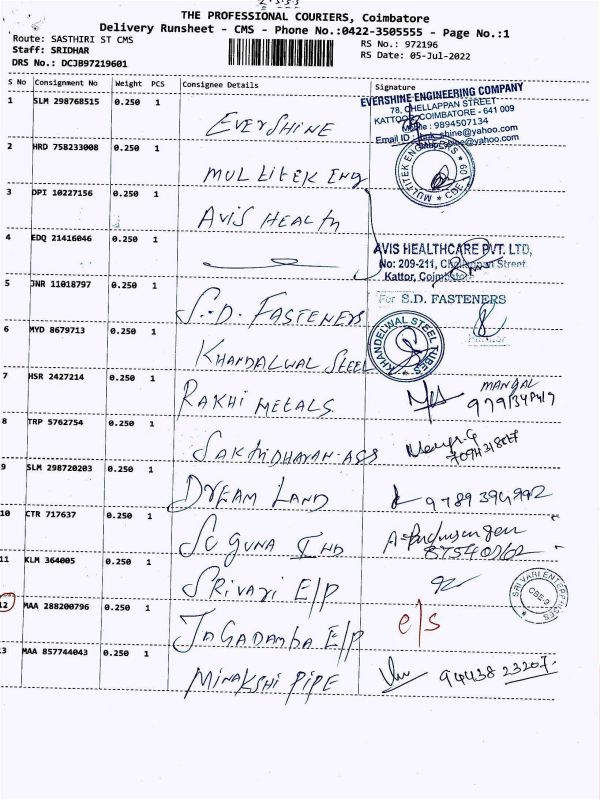 THE PROFESSIONAL COURIERS, Coimbatore
Delivery Runsheet - CMS - Phone No.:0422-3505555 - Page No.:1
Route: SASTHIRI ST CMS
Staff: SRIDHAR
DRS No.: DCJB97219601
RS No.: 972196
RS Date: 05-Jul-2022
S No Consignment No Weight PCS Consignee Details Signature
1 SLM 298768515 0.250 1 EVERSHINE
EVERSHINE ENGINEERING COMPANY
78, CHELLAPPAN STREET
KATTOOR, COIMBATORE - 641 009
Mobile : 9894507134
2 HRD 758233008 0.250 1 MULtitEK ENg
MULTITEK ENGINEERS * CBE 09 *
3 DPI 10227156 0.250 1 AVIS HEALth
4 EDQ 21416046 0.250 1
AVIS HEALTHCARE PVT. LTD,
No: 209-211, Chellappan Street
Kattor, Coimbatore
5 JNR 11018797 0.250 1 S.D. FASTENERS
For S.D. FASTENERS
Partner
6 MYD 8679713 0.250 1 KHANDALWAL STEEL
KHANDELWAL STEEL TUBES
7 HSR 2427214 0.250 1 RAKHI METALS
MANGAL
8 TRP 5762754 0.250 1 SAKthIDHARAN-ASS
9 SLM 298720203 0.250 1 DREAM LAND
9789394992
10 CTR 717637 0.250 1 SUGUNA IND
11 KLM 364005 0.250 1 SRIVARI E/P
SRI VARI ENTERPRISES CBE-9
12 MAA 288200796 0.250 1 JAGADAMBA E/P
e/s
13 MAA 857744043 0.250 1 MINAKSHI PIPE
94438 23207